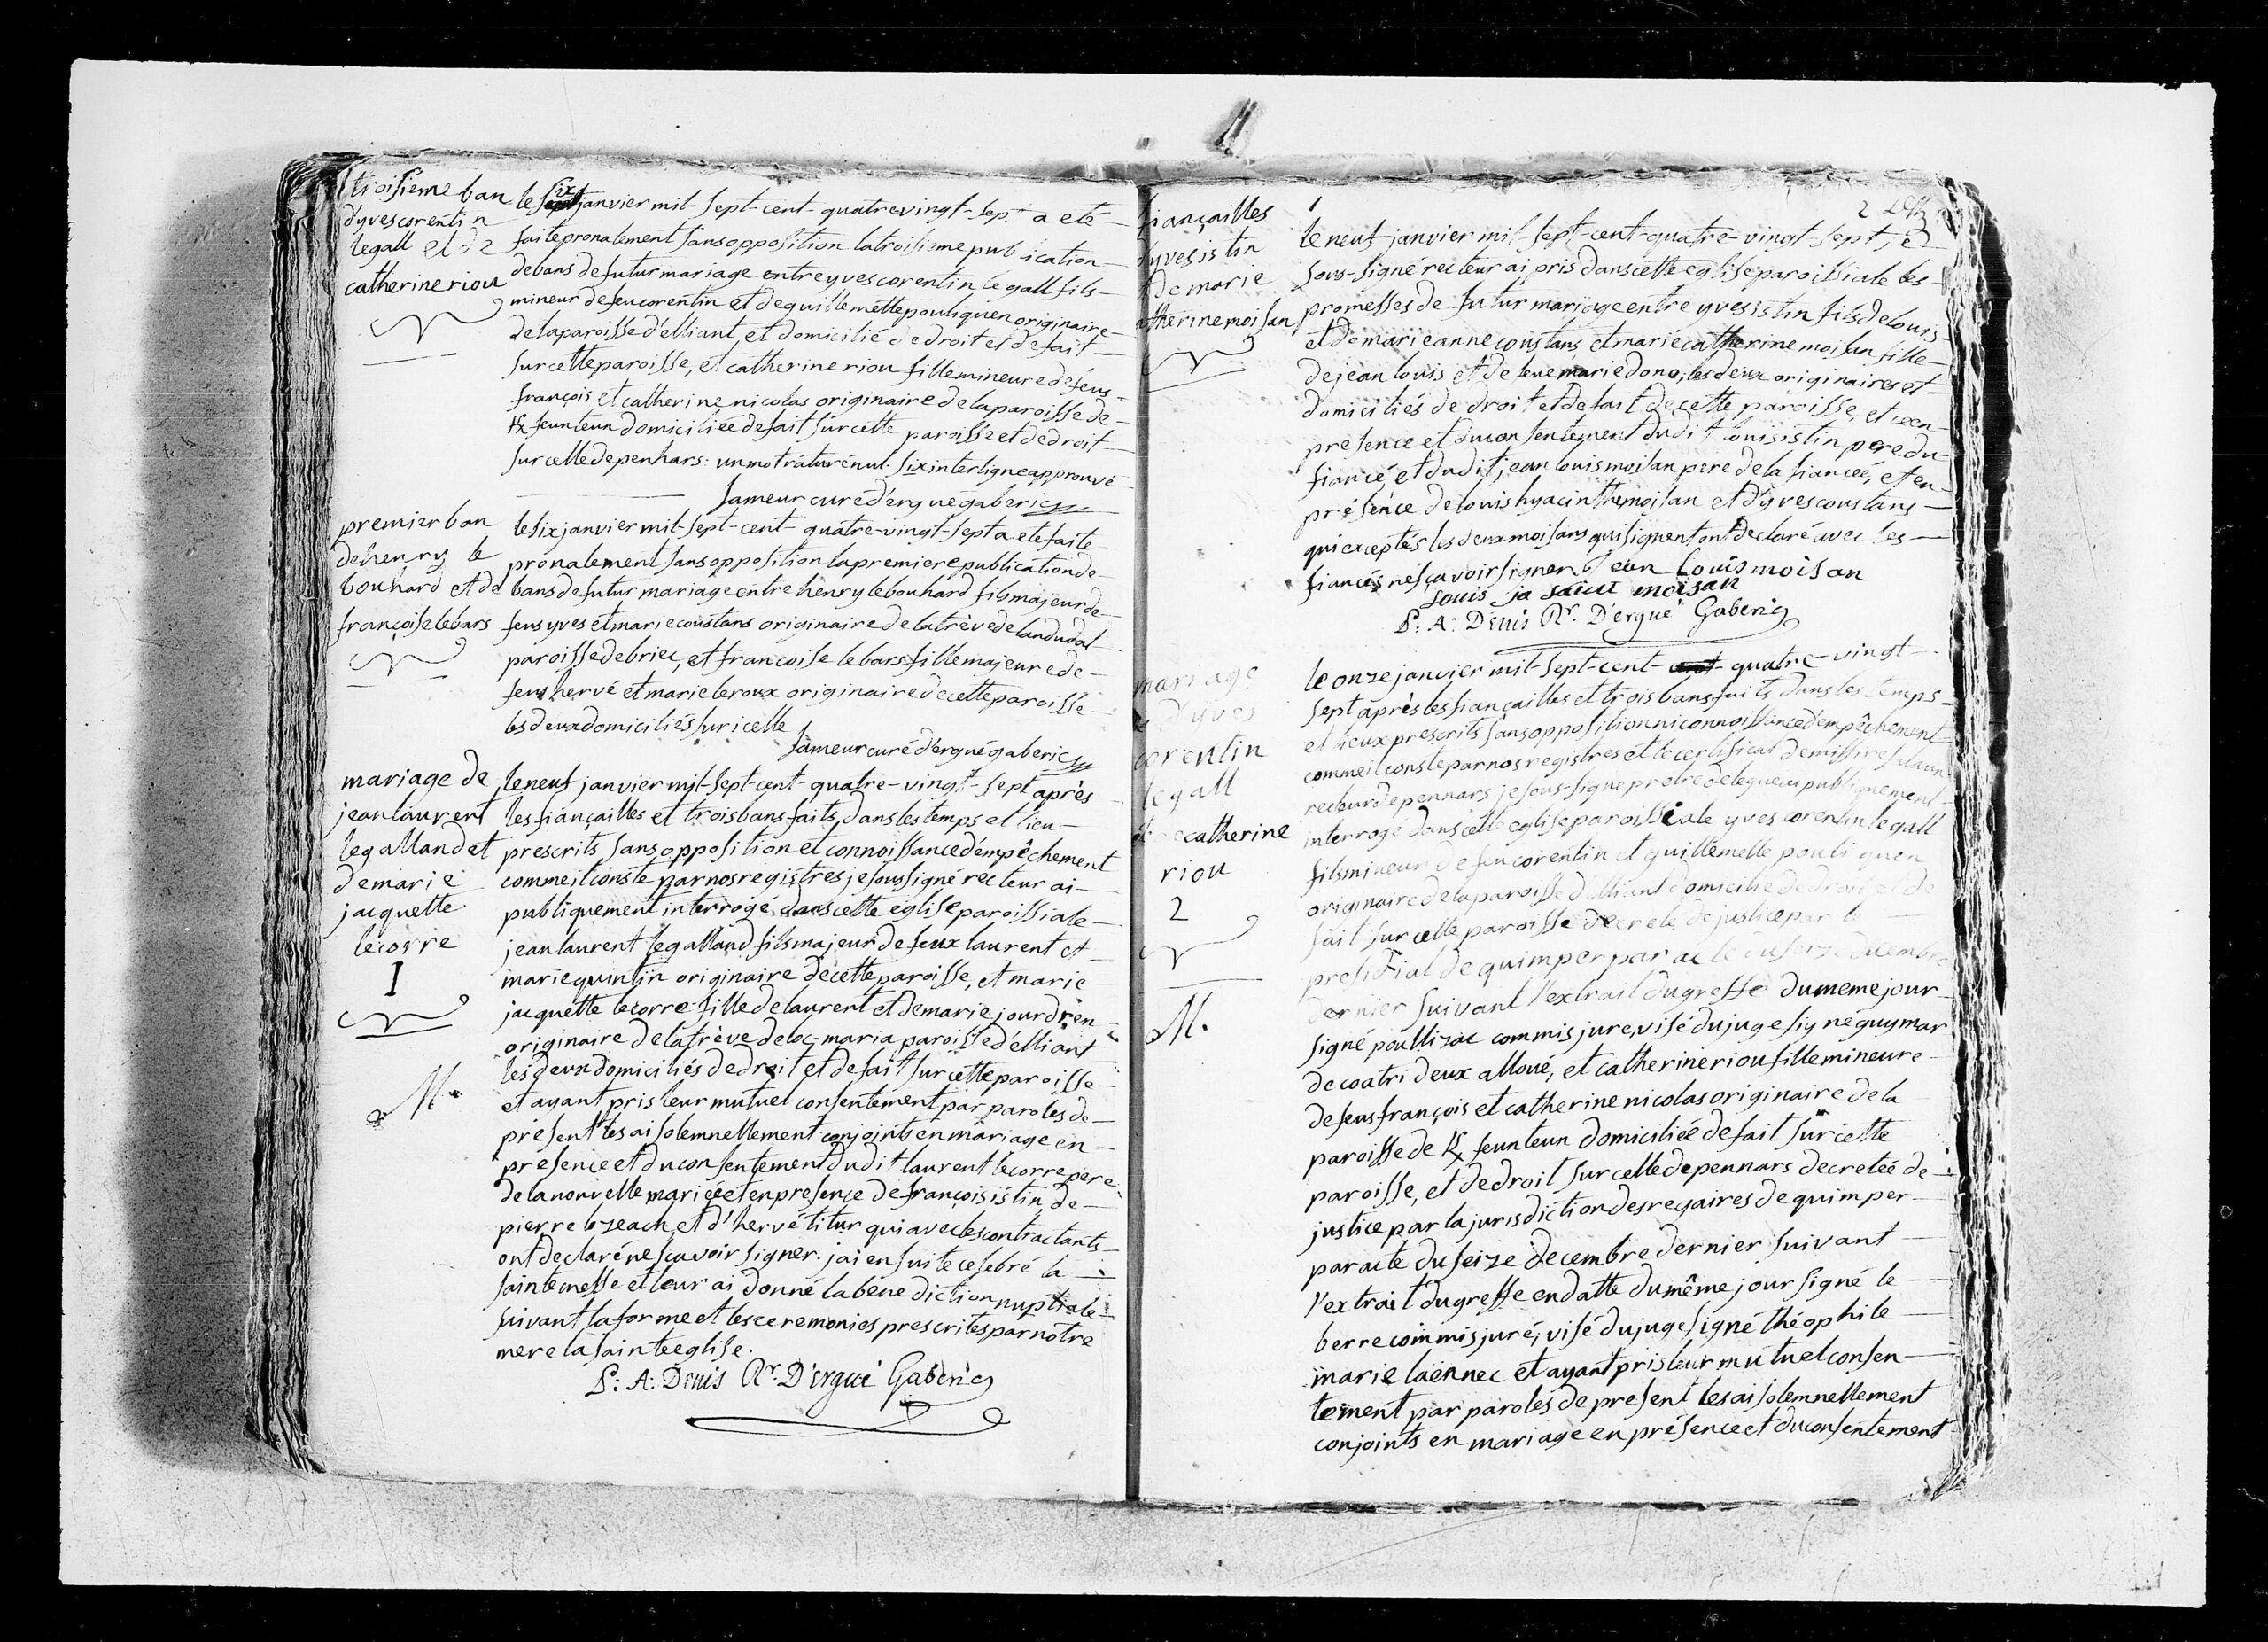 troisieme ban
d'yves corentin
le gall et de
catherine riou
le six janvier mil-sept-cent-quatrevingt-sept a eté
faite pronalement sans opposition la troisieme publication
de bans de futur mariage entre yves corentin le gall fils
mineur de feu corentin et de guillemette pouliquen originaire
de la paroisse d'elliant, et domicilié de droit et de fait
sur cette paroisse, et catherine riou fille mineure de feus
françois et catherine nicolas originaire de la paroisse de
feunteun domiciliée de fait sur cette paroisse et de droit
sur celle de penhars: un mot raturé nul. six interligne approuvé
Lameur curé d'ergué gaberic
premier ban
de henry le
bouhard et de
françoise le bars
le six janvier mil-sept-cent-quatre-vingt-sept a eté faite
pronalement sans opposition la premiere publication de
bans de futur mariage entre henry le bouhard fils majeur de
feus yves et marie coustans originaire de la trève de landudal
paroisse de briec, et françoise le bars fille majeure de
feus hervé et marie le roux originaire de cette paroisse
les deux domiciliés sur icelle
Lameur curé d'ergué gaberic
mariage de
jean laurent
le galland et
de marie
jacquette
le corre
1
M.
le neuf janvier mil-sept-cent-quatre-vingt-sept après
les fiançailles et trois bans faits, dans les temps et lieu
prescrits sans opposition et connoissance d'empêchement
comme il conste par nos registres je soussigné recteur ai
publiquement interrogé dans cette église paroissiale
jean laurent le galland fils majeur de feux laurent et
marie quintin originaire de cette paroisse, et marie
jacquette le corre fille de laurent et de marie jourdren
originaire de la trève de loc-maria paroisse d'élliant
les deux domiciliés de droit et de fait sur cette paroisse
et ayant pris leur mutuel consentement par paroles de
présent les ai solemnellement conjoints en mariage en
presence et du consentement dudit laurent le corre pere
de la nouvelle mariée et en presence de françois istin, de
pierre lozeach et d'hervé titur qui avec les contractants
ont declaré ne sçavoir signer. j'ai en suite celebré la
sainte messe et leur ai donné la béne diction nuptiale
suivant la forme et les ceremonies prescrites par notre
mere la sainte eglise.
P: A: Denis Rr. D'ergué Gaberic
fiançailles
d'yves istin
et de marie
catherine moisan
1
2
le neuf janvier mil-sept-cent-quatre-vingt-sept, je
sous-signé recteur ai pris dans cette eglise paroissiale les
promesses de futur mariage entre yves istin fils de louis
et de marie anne coustans et marie catherine moisan fille
de jean louis et de feue marie dono, les deux originaires et
domiciliés de droit et de fait de cette paroisse, et ce en
présence et du consentement dudit louis istin pere du
fiancé, et dudit jean louis moisan pere de la fiancée, et en
présence de louis hyacinthe moisan et d'yves coustans
qui exceptés les deux moisans qui signent ont declaré avec les
fiancés ne sçavoir signer. Jean Louis moisan
Louis ja saint moisan
P: A: Denis Rr. D'ergué Gaberic
mariage
d'yves
corentin
le gall
et de catherine
riou
2
M.
le onze janvier mil-sept-cent-quatre-vingt
sept après les fiançailles et trois bans faits dans les temps
et lieux prescrits sans opposition ni connoissance d'empêchement
comme il conste par nos registres et le certificat de missire
recteur de pennars je sous-signé pretre delegué ai publiquement
interrogé dans cette eglise paroissiale yves corentin le gall
fils mineur de feu corentin et guillemette pouliquen
originaire de la paroisse d'elliant domicilié de droit et de
fait sur cette paroisse decreté de justice par le
presidial de quimper par acte du seize decembre
dernier suivant l'extrait du greffe du meme jour
signé poullizac commis juré, visé du juge signé guymar
de coatri deux alloué, et catherine riou fille mineure
de feus françois et catherine nicolas originaire de la
paroisse de feunteun domiciliée de fait sur cette
paroisse, et de droit sur celle de pennars decretée de
justice par la jurisdiction des regaires de quimper
par acte du seize decembre dernier suivant
l'extrait du greffe en datte du même jour signé le
berre commis juré, visé du juge signé théophile
marie laënnec et ayant pris leur mutuel consen
tement par paroles de present les ai solemnellement
conjoints en mariage en présence et du consentement